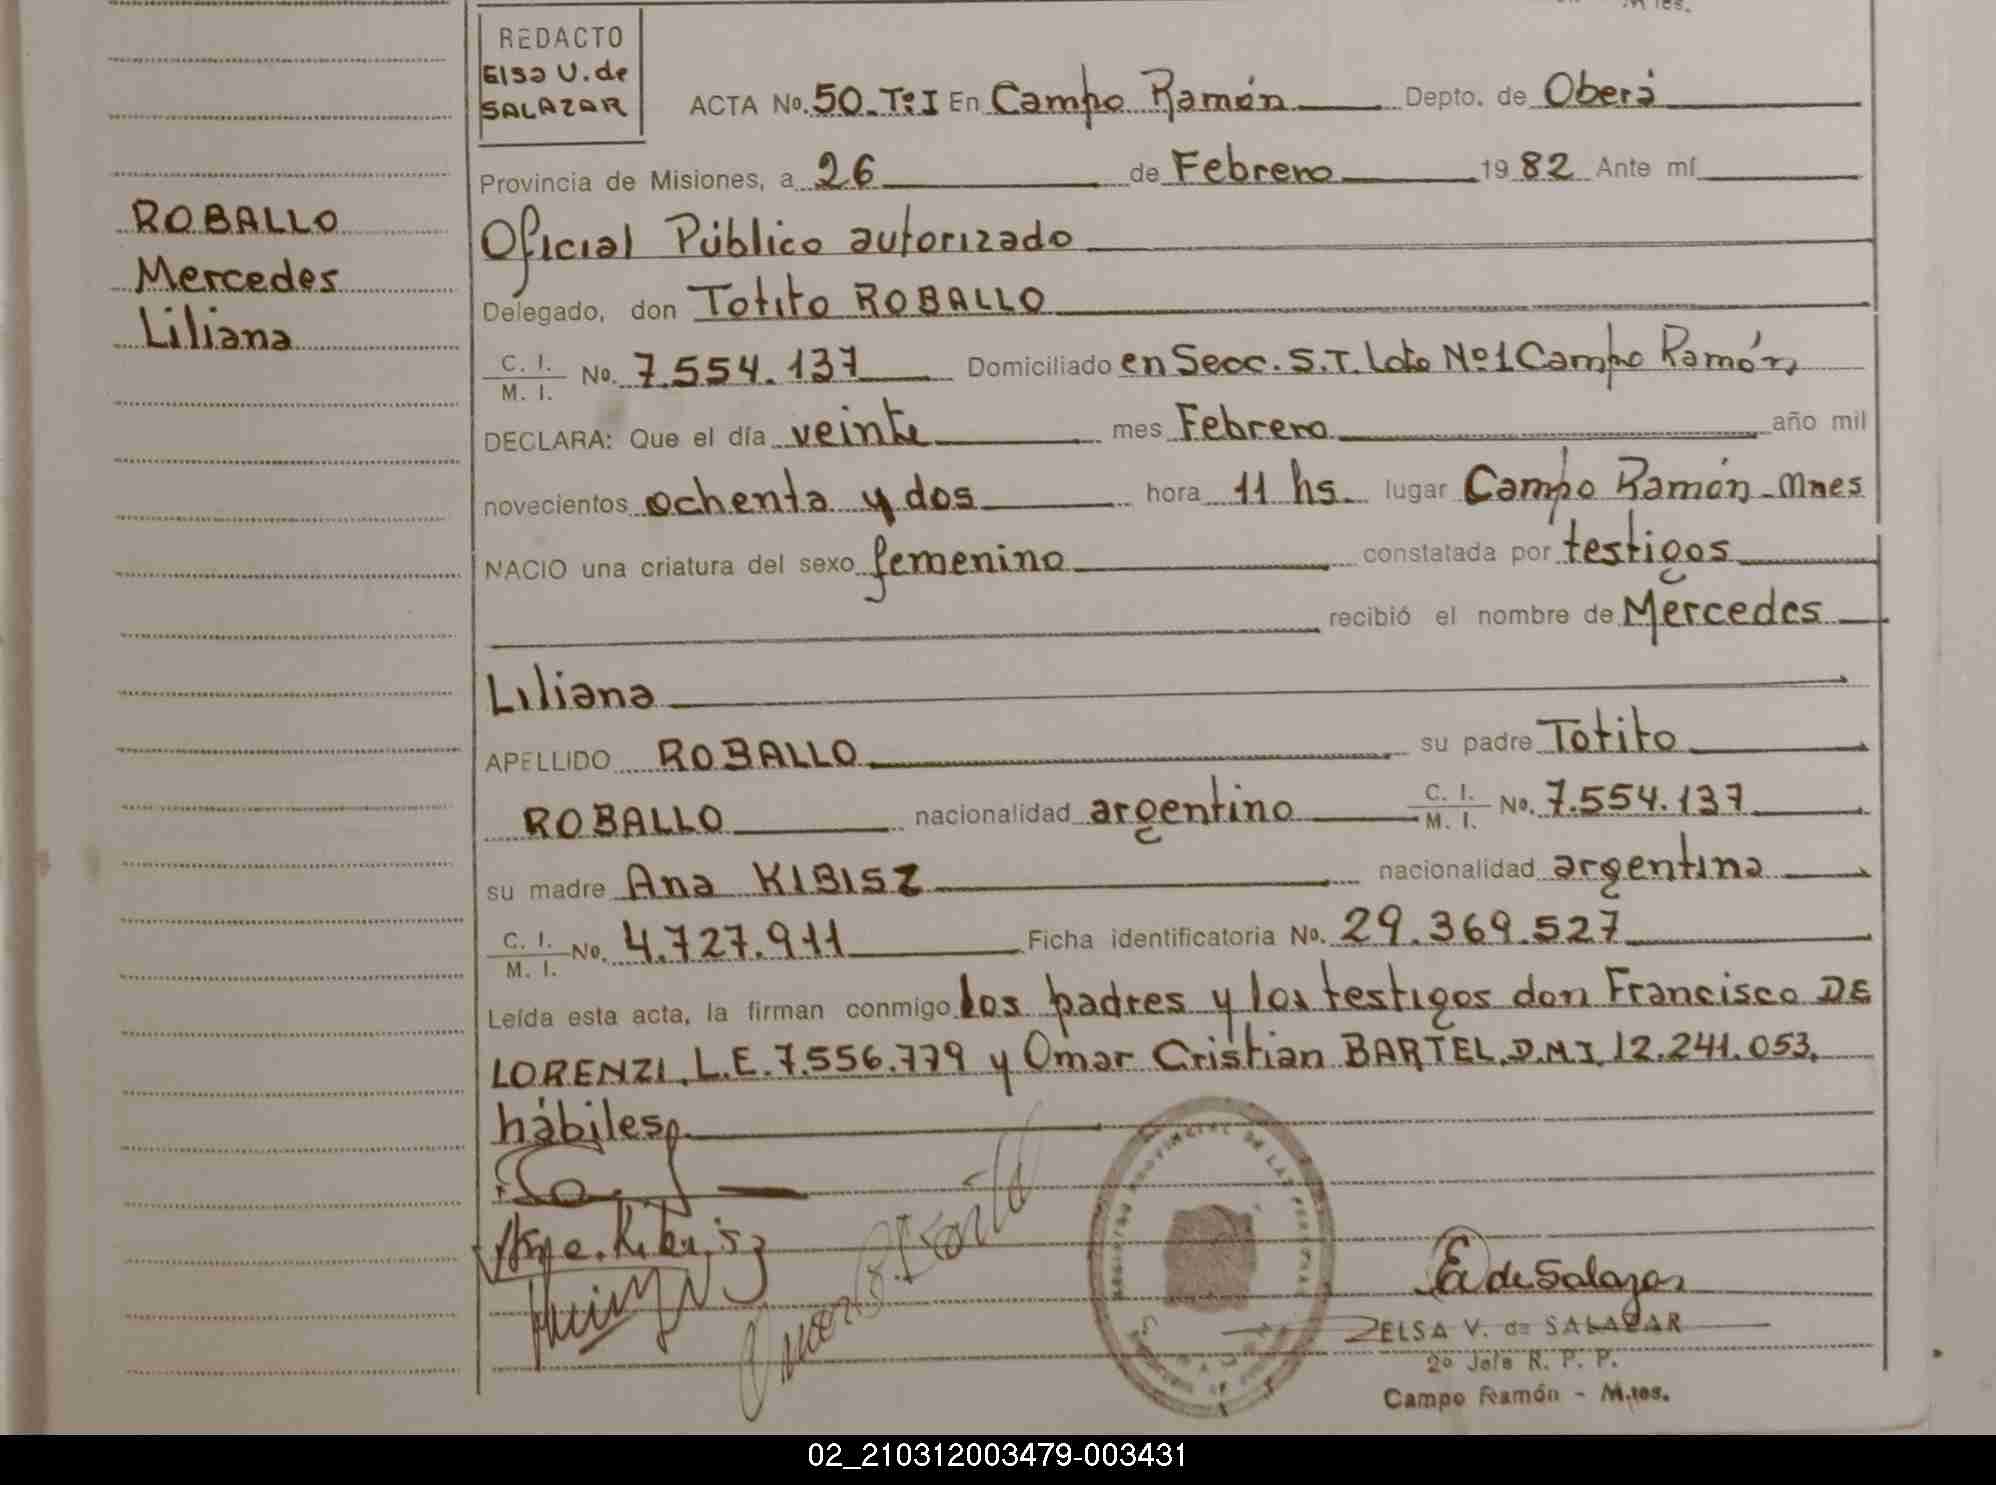 REDACTO
Elsa V. de
SALAZAR
ACTA No. 50_Tº I En Campo Ramón Depto. de Oberá
Provincia de Misiones, a 26 de Febrero 19 82 Ante mí
Oficial Público autorizado
Delegado, don Totito ROBALLO
C. I. / M. I. No. 7.554.137 Domiciliado en Secc. S.T. Lote Nº1 Campo Ramón
DECLARA: Que el día veinte mes Febrero año mil
novecientos ochenta y dos hora 11 hs. lugar Campo Ramón - Mnes
NACIO una criatura del sexo femenino constatada por testigos
recibió el nombre de Mercedes
Liliana
APELLIDO ROBALLO su padre Totito
ROBALLO nacionalidad argentino C. I. / M. I. No. 7.554.137
su madre Ana KIBISZ nacionalidad argentina
C. I. / M. I. No. 4.727.911 Ficha identificatoria No. 29.369.527
Leída esta acta, la firman conmigo los padres y los testigos don Francisco DE
LORENZI, L.E. 7.556.779 y Omar Cristian BARTEL, D.N.I. 12.241.053,
hábiles
ROBALLO
Mercedes
Liliana
E de Salazar
ELSA V. de SALAZAR
2º Jefe R. P. P.
Campo Ramón - M.nes.
02_210312003479-003431